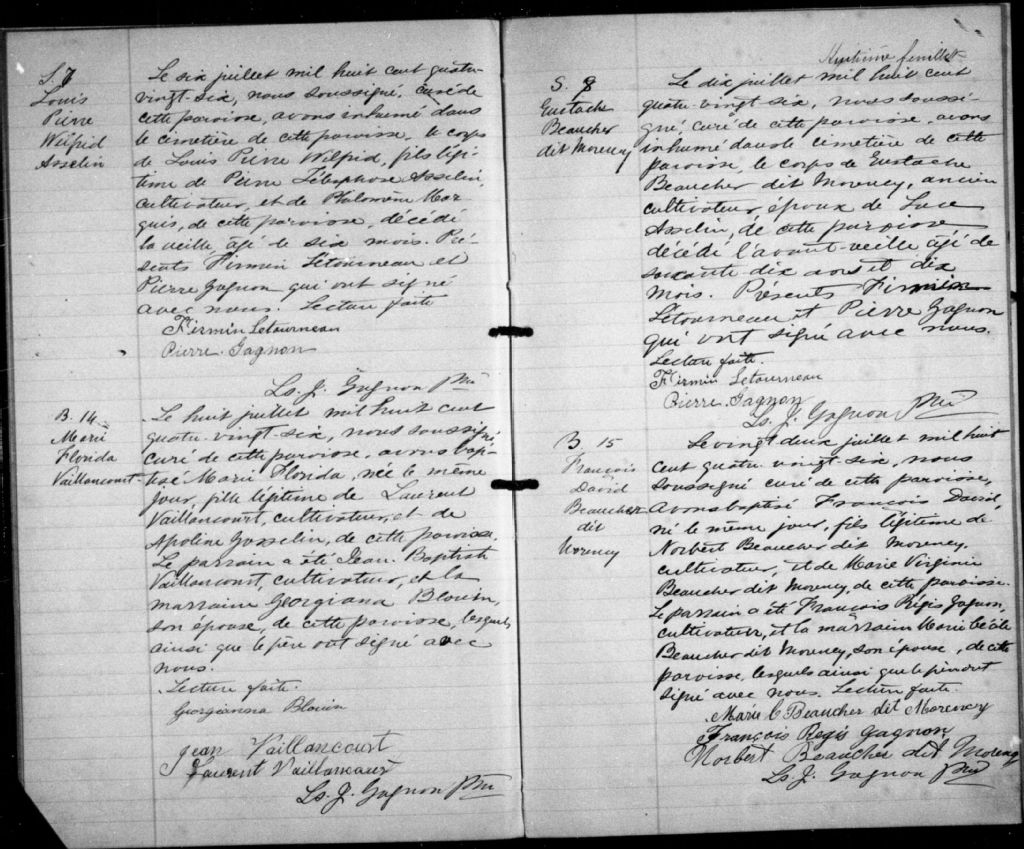 S. 7
Louis
Pierre
Wilfrid
Asselin
Le six juillet mil huit cent quatre-
vingt-six, nous soussigné, curé de
cette paroisse, avons inhumé dans
le cimetière de cette paroisse, le corps
de Louis Pierre Wilfrid, fils légi-
time de Pierre Télesphore Asselin,
cultivateur, et de Philomène Mar-
quis, de cette paroisse, décédé
la veille, âgé de six mois. Pré-
sents Firmin Létourneau et
Pierre Gagnon qui ont signé
avec nous. Lecture faite
Firmin Letourneau
Pierre Gagnon
Ls. J. Gagnon Ptre
B. 14
Marie
Florida
Vaillancourt
Le huit juillet mil huit cent
quatre-vingt-six, nous soussigné,
curé de cette paroisse, avons bap-
tisé Marie Florida, née le même
jour, fille légitime de Laurent
Vaillancourt, cultivateur, et de
Apoline Gosselin, de cette paroisse.
Le parrain a été Jean-Baptiste
Vaillancourt, cultivateur, et la
marraine Georgiana Blouin,
son épouse, de cette paroisse, lesquels
ainsi que le père ont signé avec
nous.
Lecture faite.
Georgianna Blouin
Jean Vaillancourt
Laurent Vaillancourt
Ls. J. Gagnon Ptre
Huitième feuillet
S. 8
Eustache
Beaucher
dit Morency
Le dix juillet mil huit cent
quatre-vingt six, nous soussi-
gné, curé de cette paroisse, avons
inhumé dans le cimetière de cette
paroisse, le corps de Eustache
Beaucher dit Morency, ancien
cultivateur, époux de Luce
Asselin, de cette paroisse
décédé l'avant-veille âgé de
soixante dix ans et dix
mois. Présents Firmin
Létourneau et Pierre Gagnon
qui ont signé avec nous.
Lecture faite.
Firmin Letourneau
Pierre Gagnon
Ls. J. Gagnon Ptre
B. 15
François
David
Beaucher
dit
Morency
Le vingt deux juillet mil huit
cent quatre-vingt-six, nous
soussigné curé de cette paroisse,
avons baptisé François David,
né le même jour, fils légitime de
Norbert Beaucher dit Morency,
cultivateur, et de Marie Virginie
Beaucher dit Morency, de cette paroisse.
Le parrain a été François Régis Gagnon,
cultivateur, et la marraine Marie Cécile
Beaucher dit Morency, son épouse, de cette
paroisse, lesquels ainsi que le père ont
signé avec nous. Lecture faite.
Marie C Beaucher dit Morency
François Regis Gagnon
Norbert Beaucher dit Morency
Ls. J. Gagnon Ptre